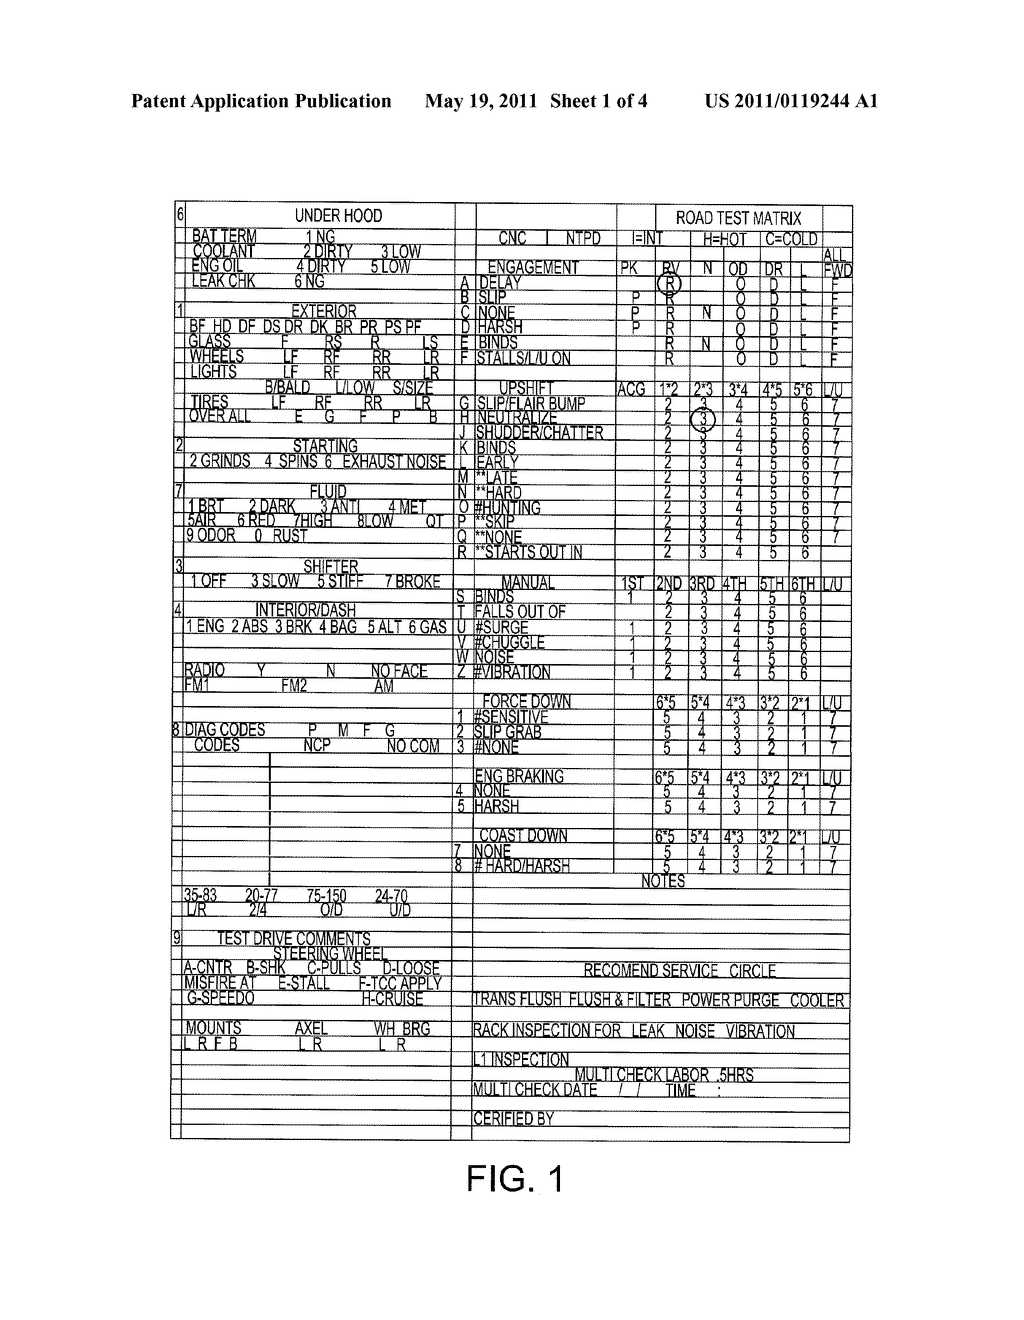 Patent Application Publication May 19, 2011 Sheet 1 of 4 US 2011/0119244 A1
6 UNDER HOOD
BAT TERM 1 NG
COOLANT 2 DIRTY 3 LOW
ENG OIL 4 DIRTY 5 LOW
LEAK CHK 6 NG
1 EXTERIOR
BF HD DF DS DR DK BR PR PS PF
GLASS F RS R LS
WHEELS LF RF RR LR
LIGHTS LF RF RR LR
B/BALD L/LOW S/SIZE
TIRES LF RF RR LR
OVER ALL E G F P B
2 STARTING
2 GRINDS 4 SPINS 6 EXHAUST NOISE
7 FLUID
1 BRT 2 DARK 3 ANTI 4 MET
5AIR 6 RED 7HIGH 8LOW QT
9 ODOR 0 RUST
3 SHIFTER
1 OFF 3 SLOW 5 STIFF 7 BROKE
4 INTERIOR/DASH
1 ENG 2 ABS 3 BRK 4 BAG 5 ALT 6 GAS
RADIO Y N NO FACE
FM1 FM2 AM
8 DIAG CODES P M F G
CODES NCP NO COM
35-83 20-77 75-150 24-70
L/R 2/4 O/D U/D
9 TEST DRIVE COMMENTS
STEERING WHEEL
A-CNTR B-SHK C-PULLS D-LOOSE
MISFIRE AT E-STALL F-TCC APPLY
G-SPEEDO H-CRUISE
MOUNTS AXEL WH BRG
L R F B L R L R
ROAD TEST MATRIX
CNC I NTPD I=INT H=HOT C=COLD
ALL
ENGAGEMENT PK RV N OD DR L FWD
A DELAY R O D L F
B SLIP P R O D L F
C NONE P R N O D L F
D HARSH P R O D L F
E BINDS R N O D L F
F STALLS/L/U ON R O D L F
UPSHIFT ACG 1*2 2*3 3*4 4*5 5*6 L/U
G SLIP/FLAIR BUMP 2 3 4 5 6 7
H NEUTRALIZE 2 3 4 5 6 7
J SHUDDER/CHATTER 2 3 4 5 6 7
K BINDS 2 3 4 5 6 7
L EARLY 2 3 4 5 6 7
M **LATE 2 3 4 5 6 7
N **HARD 2 3 4 5 6 7
O #HUNTING 2 3 4 5 6 7
P **SKIP 2 3 4 5 6 7
Q **NONE 2 3 4 5 6 7
R **STARTS OUT IN 2 3 4 5 6
MANUAL 1ST 2ND 3RD 4TH 5TH 6TH L/U
S BINDS 1 2 3 4 5 6
T FALLS OUT OF 2 3 4 5 6
U #SURGE 1 2 3 4 5 6
V #CHUGGLE 1 2 3 4 5 6
W NOISE 1 2 3 4 5 6
Z #VIBRATION 1 2 3 4 5 6
FORCE DOWN 6*5 5*4 4*3 3*2 2*1 L/U
1 #SENSITIVE 5 4 3 2 1 7
2 SLIP GRAB 5 4 3 2 1 7
3 #NONE 5 4 3 2 1 7
ENG BRAKING 6*5 5*4 4*3 3*2 2*1 L/U
4 NONE 5 4 3 2 1 7
5 HARSH 5 4 3 2 1 7
COAST DOWN 6*5 5*4 4*3 3*2 2*1 L/U
7 NONE 5 4 3 2 1 7
8 # HARD/HARSH 5 4 3 2 1 7
NOTES
RECOMEND SERVICE CIRCLE
TRANS FLUSH FLUSH & FILTER POWER PURGE COOLER
RACK INSPECTION FOR LEAK NOISE VIBRATION
L1 INSPECTION
MULTI CHECK LABOR .5HRS
MULTI CHECK DATE / / TIME :
CERIFIED BY
FIG. 1